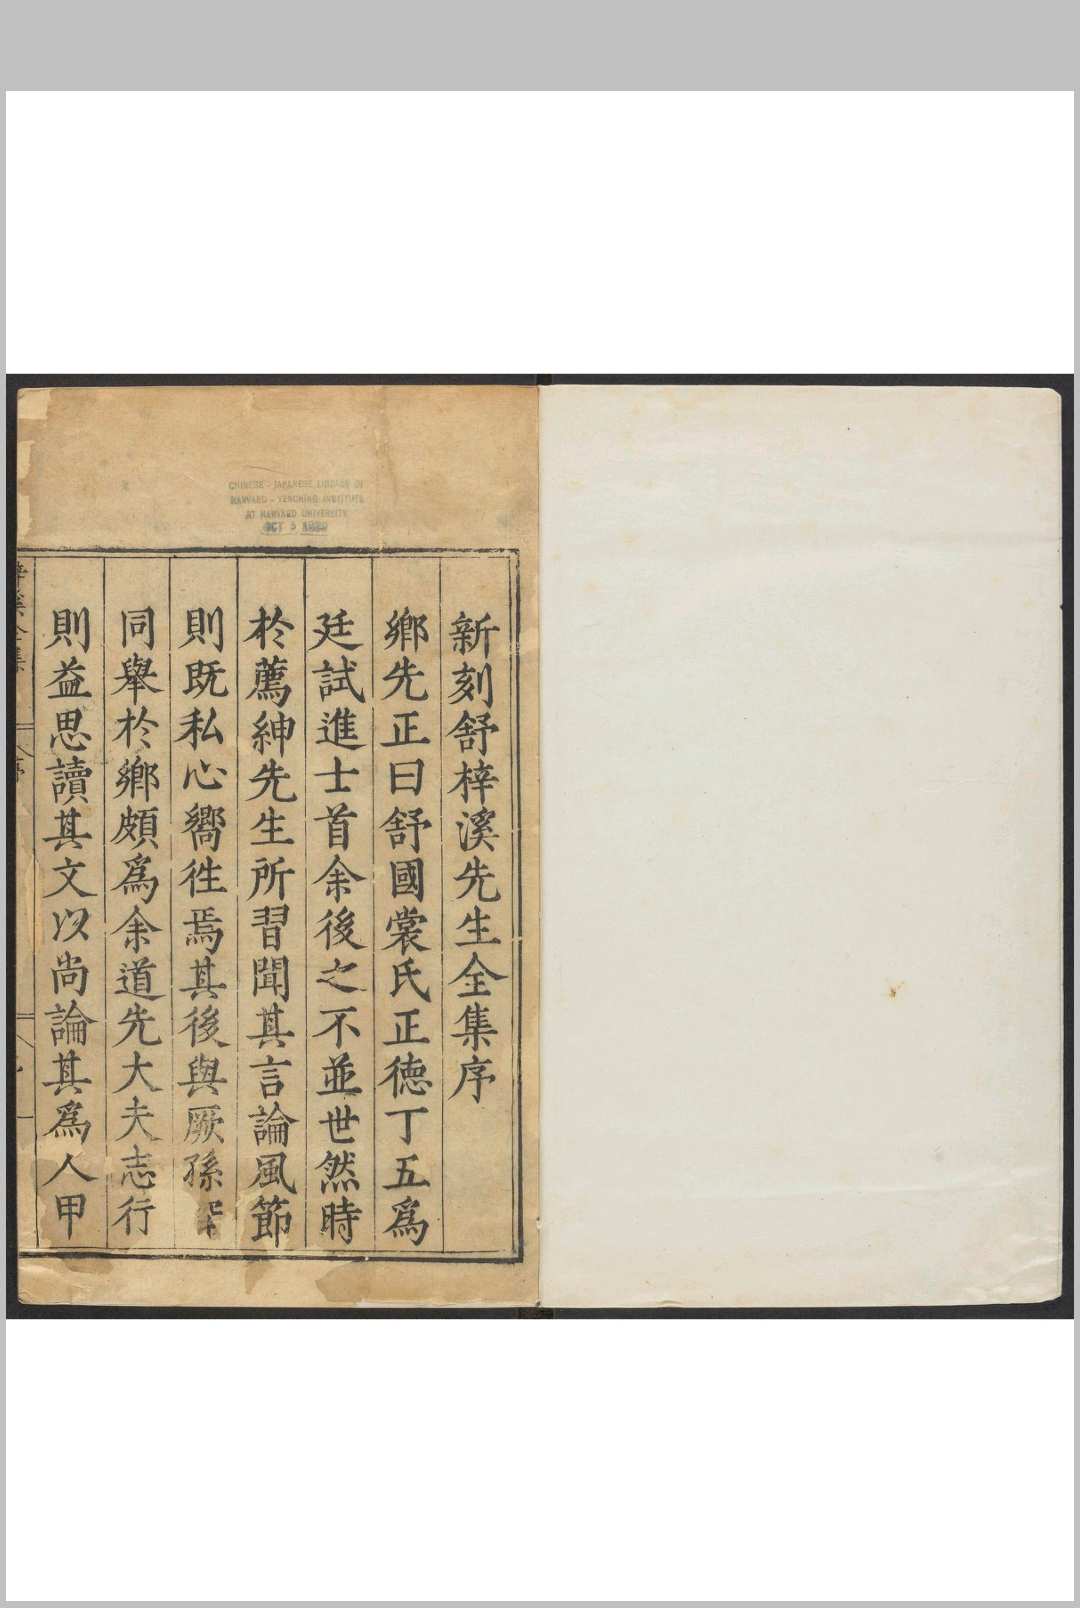 新刻舒梓溪先生全集序
鄉先正曰舒國裳氏正德丁五爲
廷試進士首余後之不並世然時
於薦紳先生所習聞其言論風節
則既私心嚮徃焉其後與厥孫
同舉於鄉頗爲余道先大夫志行
則益思讀其文以尚論其爲人甲
全集
序
CHINESE - JAPANESE LIBRARY OF
HARVARD - YENCHING INSTITUTE
AT HARVARD UNIVERSITY
OCT 5